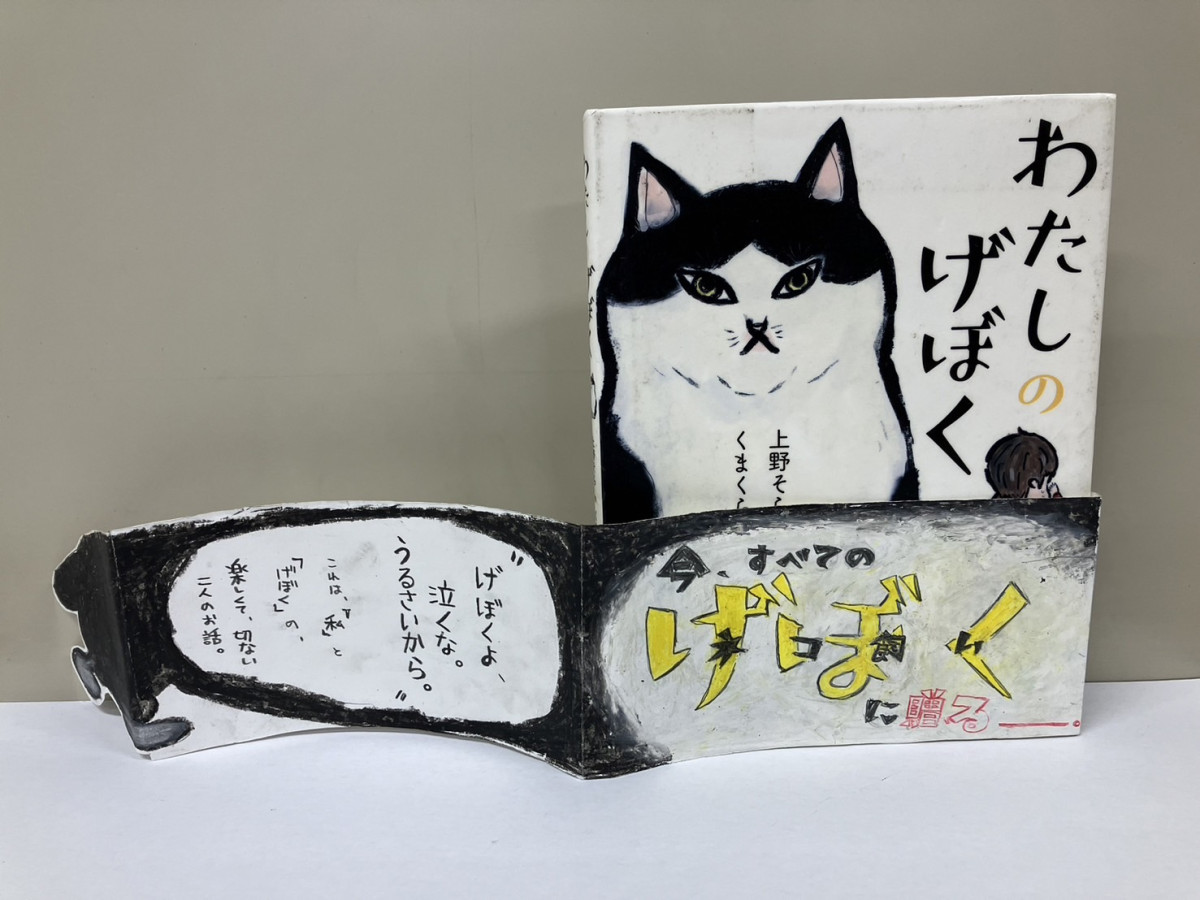 わたしの
げぼく
上野そら
くまくら
今、すべての
げぼく
ネコ飼い
に贈る――。
"げぼくよ、
泣くな。
うるさいから。"
これは、『私』と
「げぼく」の、
楽しくて、切ない
二人のお話。